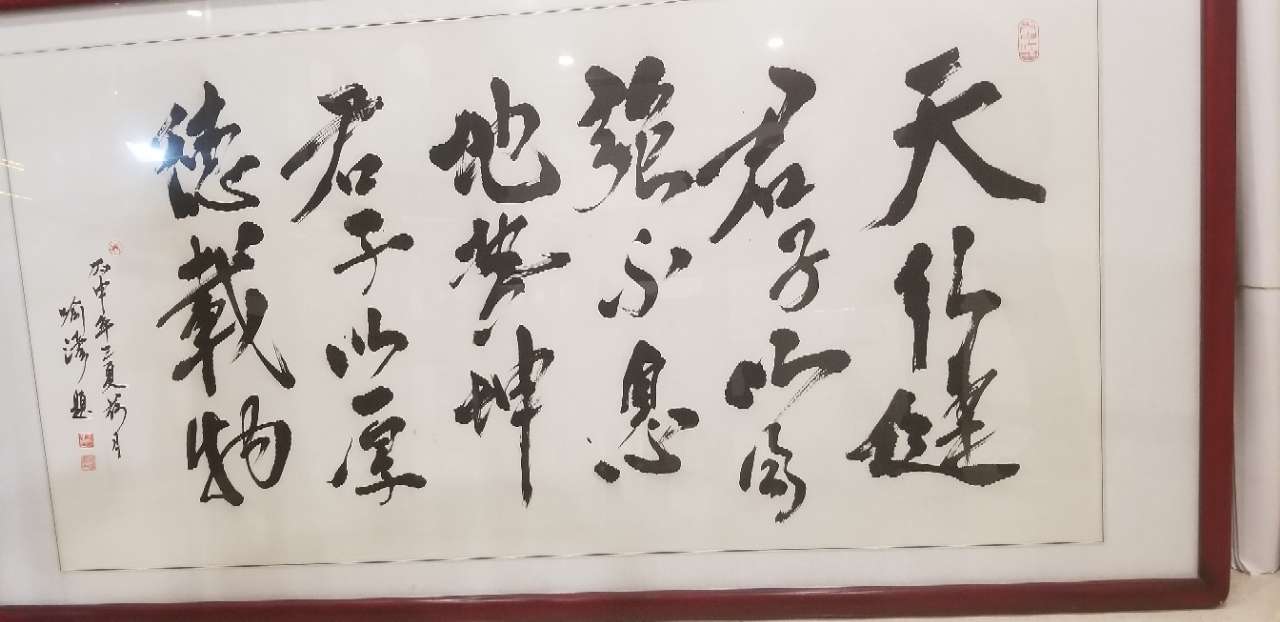 天行健
君子以自
強不息
地势坤
君子以厚
德載物
丙申年之夏荷月
喻涛題